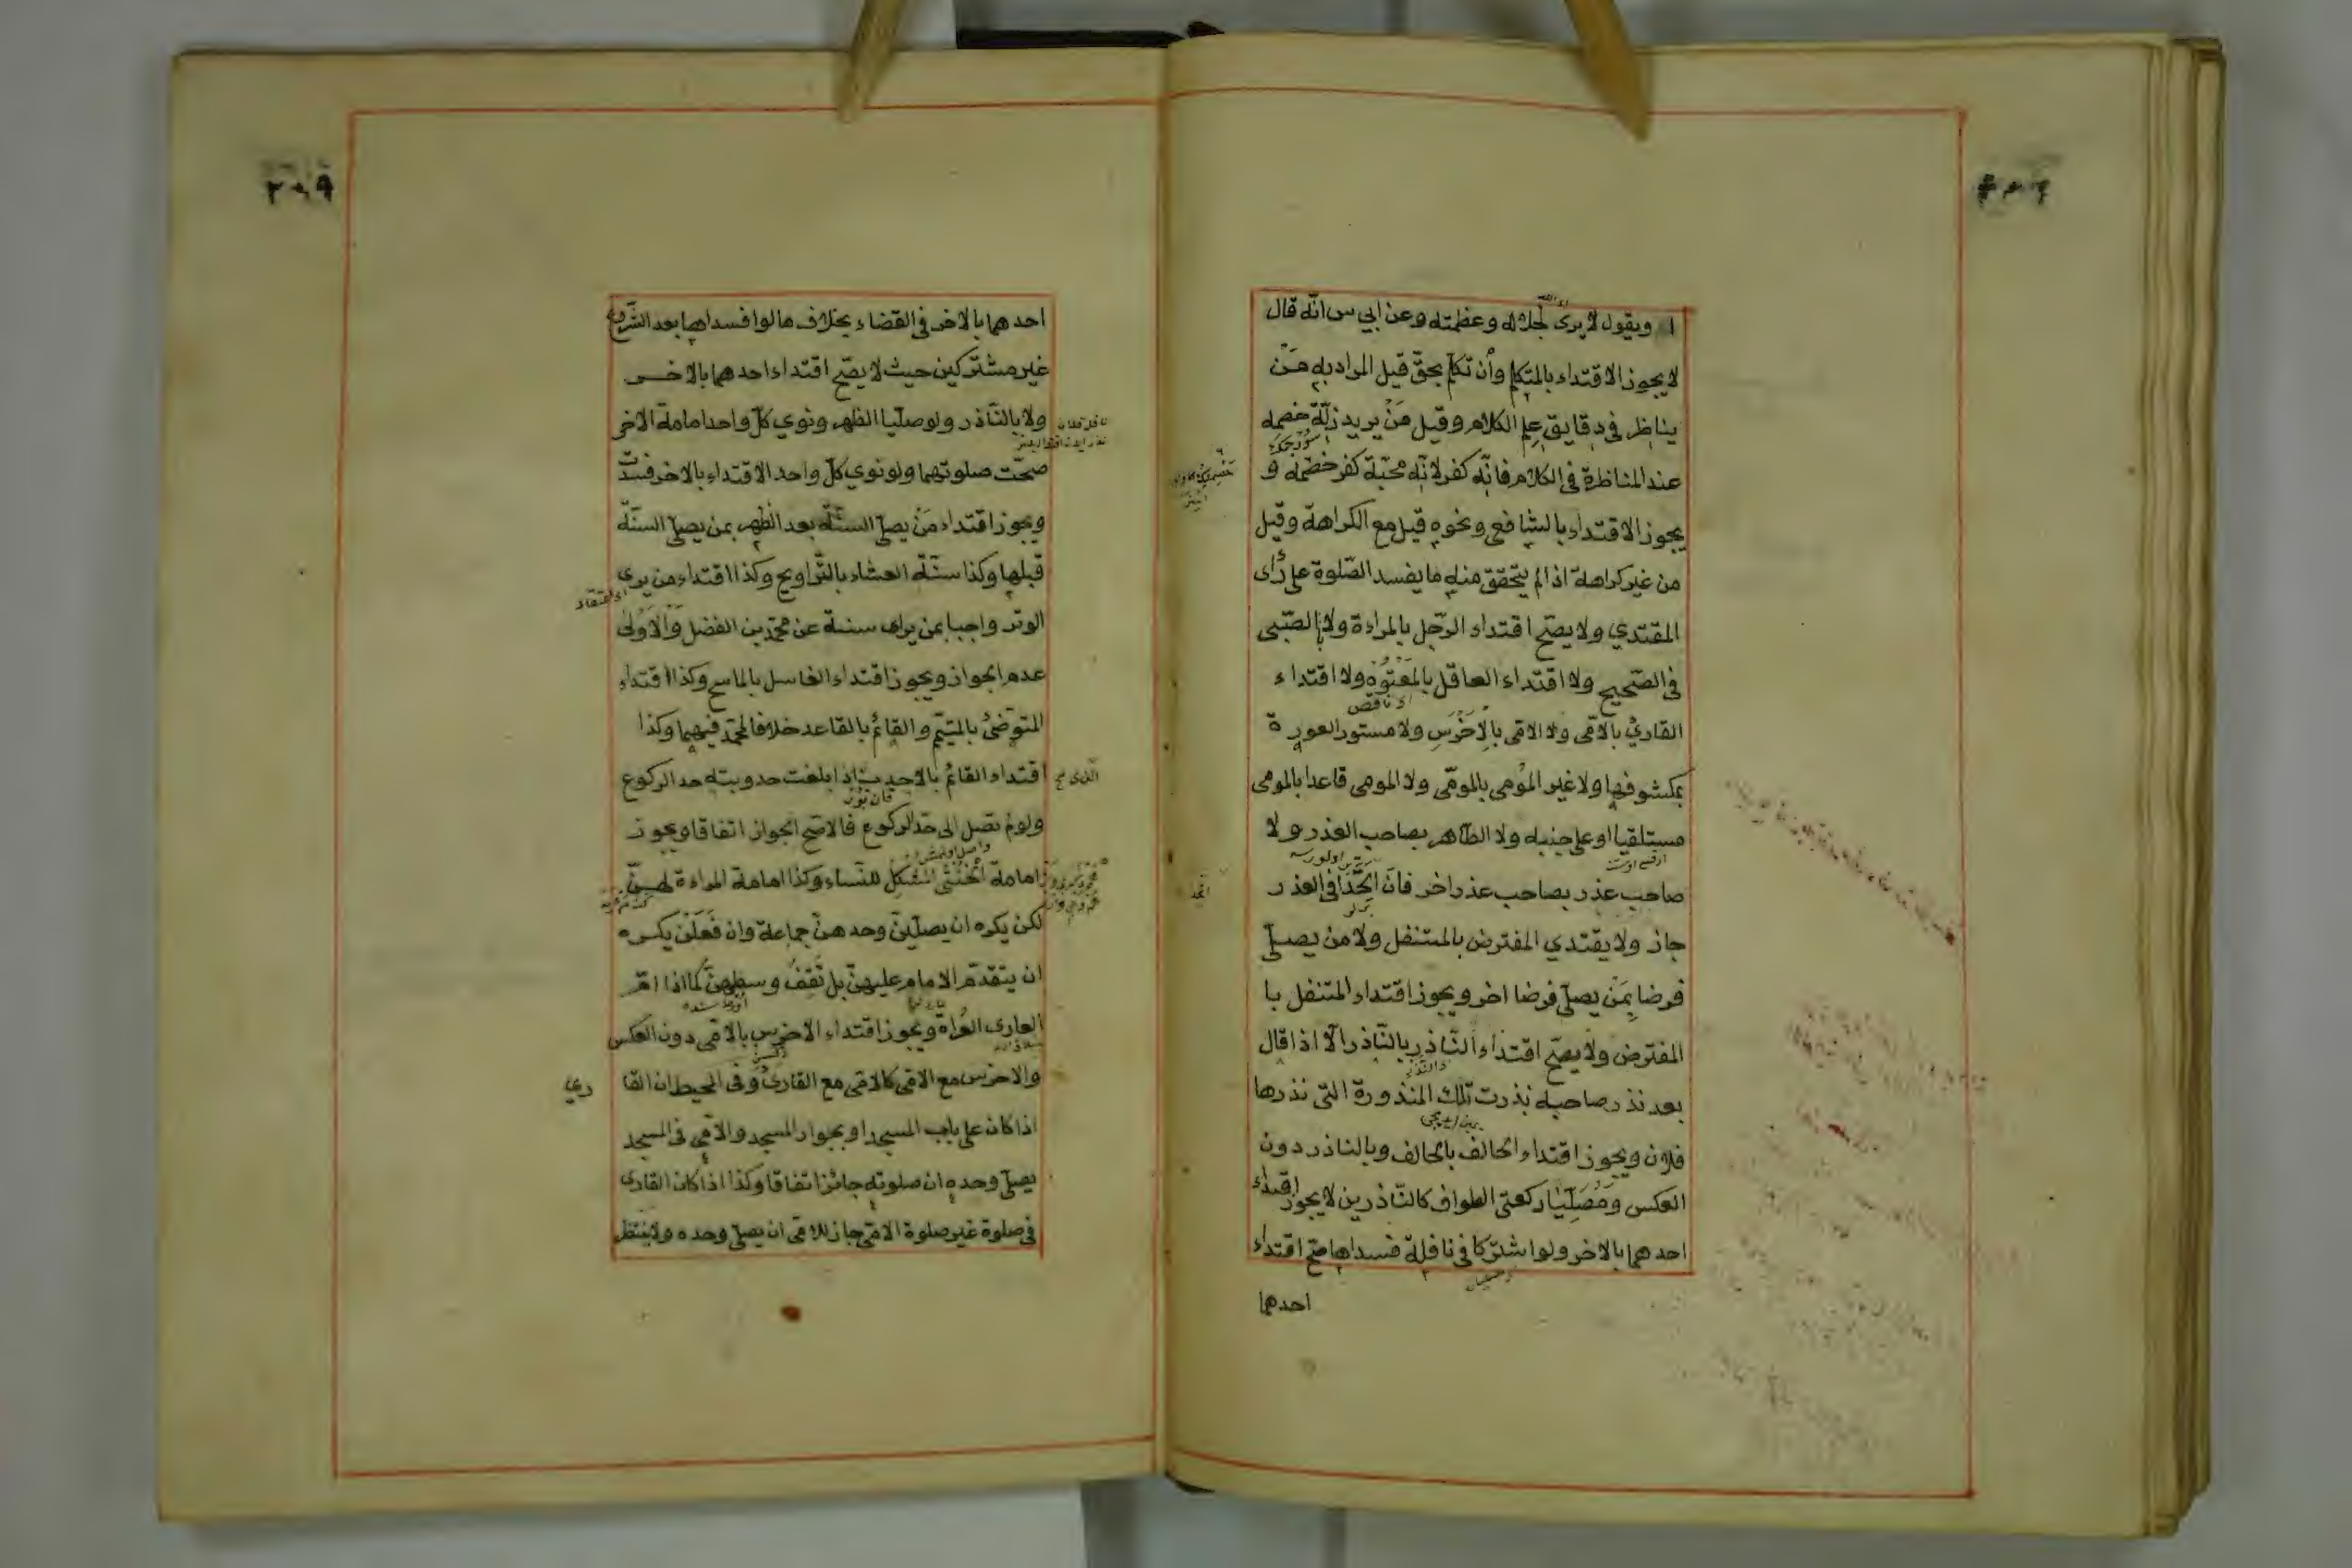 ويقول لا يرى لجلاله وعظمته وعن ابي س انّه قال
لا يجوز الاقتداء بالمتكلم وأن تكلم بحقّ قيل المراد به مَنْ
يناظر في دقايق عِلم الكلام وقيل مَنْ يريد زلّة خصمه
عند المناظرة في الكلام فانّه كفر لانّه محبّة كفر خصمه و
يجوز الاقتداء بالشافعي ونحوه قيل مع الكراهة وقيل
من غير كراهة اذا لم يتحقق منه ما يفسد الصّلوة على رأى
المقتدي ولا يصحّ اقتداء الرّجل بالمراءة ولا بالصّبي
في الصّحيح ولا اقتداء العاقل بالمَعْتُوْه ولا اقتداء
القاريْ بالاقى ولا الاقى بالاَخْرَسِ ولا مستور العورة
بمكشوفها ولا غير المؤمى بالمومّى ولا المومى قاعدا بالمومى
مستلقيا او على جنبه ولا الطّاهر بصاحب العذر ولا
صاحب عذر بصاحب عذر اخر فان اتّحَدَا في العذر
جاز ولا يقتدي المفترض بالمتنفل ولا من يصلّي
فرضا بِمَنْ يصلّي فرضا اخر ويجوز اقتداء المتنفل با
المفترض ولا يصحّ اقتداء النّاذر بالنّاذر الّا اذا قال
بعد نذر صاحبه نذرت تلك المنذورة التى نذرها
فلان ويجوز اقتداء الحالف بالحالف وبالناذر دون
العكس ومُصَلّيَا ركعتى الطواف كالنّاذرين لا يجوز اقتداء
احدهما بالاخر ولو اشتركا في نافلة فسداها صحّ اقتداء
احدهما
٢٠٩
احدهما بالاخر في القضاء بخلاف ما لو افسداها بعد الشّروع
غير مشتركين حيث لا يصّح اقتداء احدهما بالاخر
ولا بالنّاذر ولو صلّيا الظهر ونوي كلّ واحد امامة الاخر
صحّت صلوتهما ولو نوي كلّ واحد الاقتداء بالاخر فسدت
ويجوز اقتداء مَنْ يصلّي السنّة بعد الظهر بمن يصلّي السنّة
قبلها وكذا سنّة العشاء بالتّراويح وكذا اقتداء من يرى
الوتر واجبا بمن يراه سنة عن محمّد بن الفضل وَالْاَوْلى
عدم الجواز ويجوز اقتداء الغاسل بالماسح وكذا اقتداء
المتوضّئ بالمتيمّم والقائم بالقاعد خلافا لمحمّد فيهما وكذا
اقتداء القائم بالاحدب اذا بلغت حدوبته حد الركوع
ولو لم تصل الى حدّ الركوع فالاصحّ الجواز اتفاقا ويجوز
امامة الخُنْثى المُشْكل للنّساء وكذا امامة المراءة لهنّ
لكن يكره ان يصلّينَ وحدهنّ جماعة وان فَعَلْنَ يكره
ان يتقدّم الامام عليهنّ بل تقِفُ وسطهنّ كما اذا امّ
العارى العُراةَ ويجوز اقتداء الاخرس بالاقى دون العكس
والاخرس مع الاقى كالاقى مع القاريْ وفي المحيط ان القا
ري
اذا كان على باب المسجد او بجوار المسجد والاقى في المسجد
يصلّي وحده ان صلوته جائز اتفاقا وكذا اذا كان القارى
في صلوة غير صلوة الاقى جاز للاقى ان يصلّي وحده ولا ينتظر